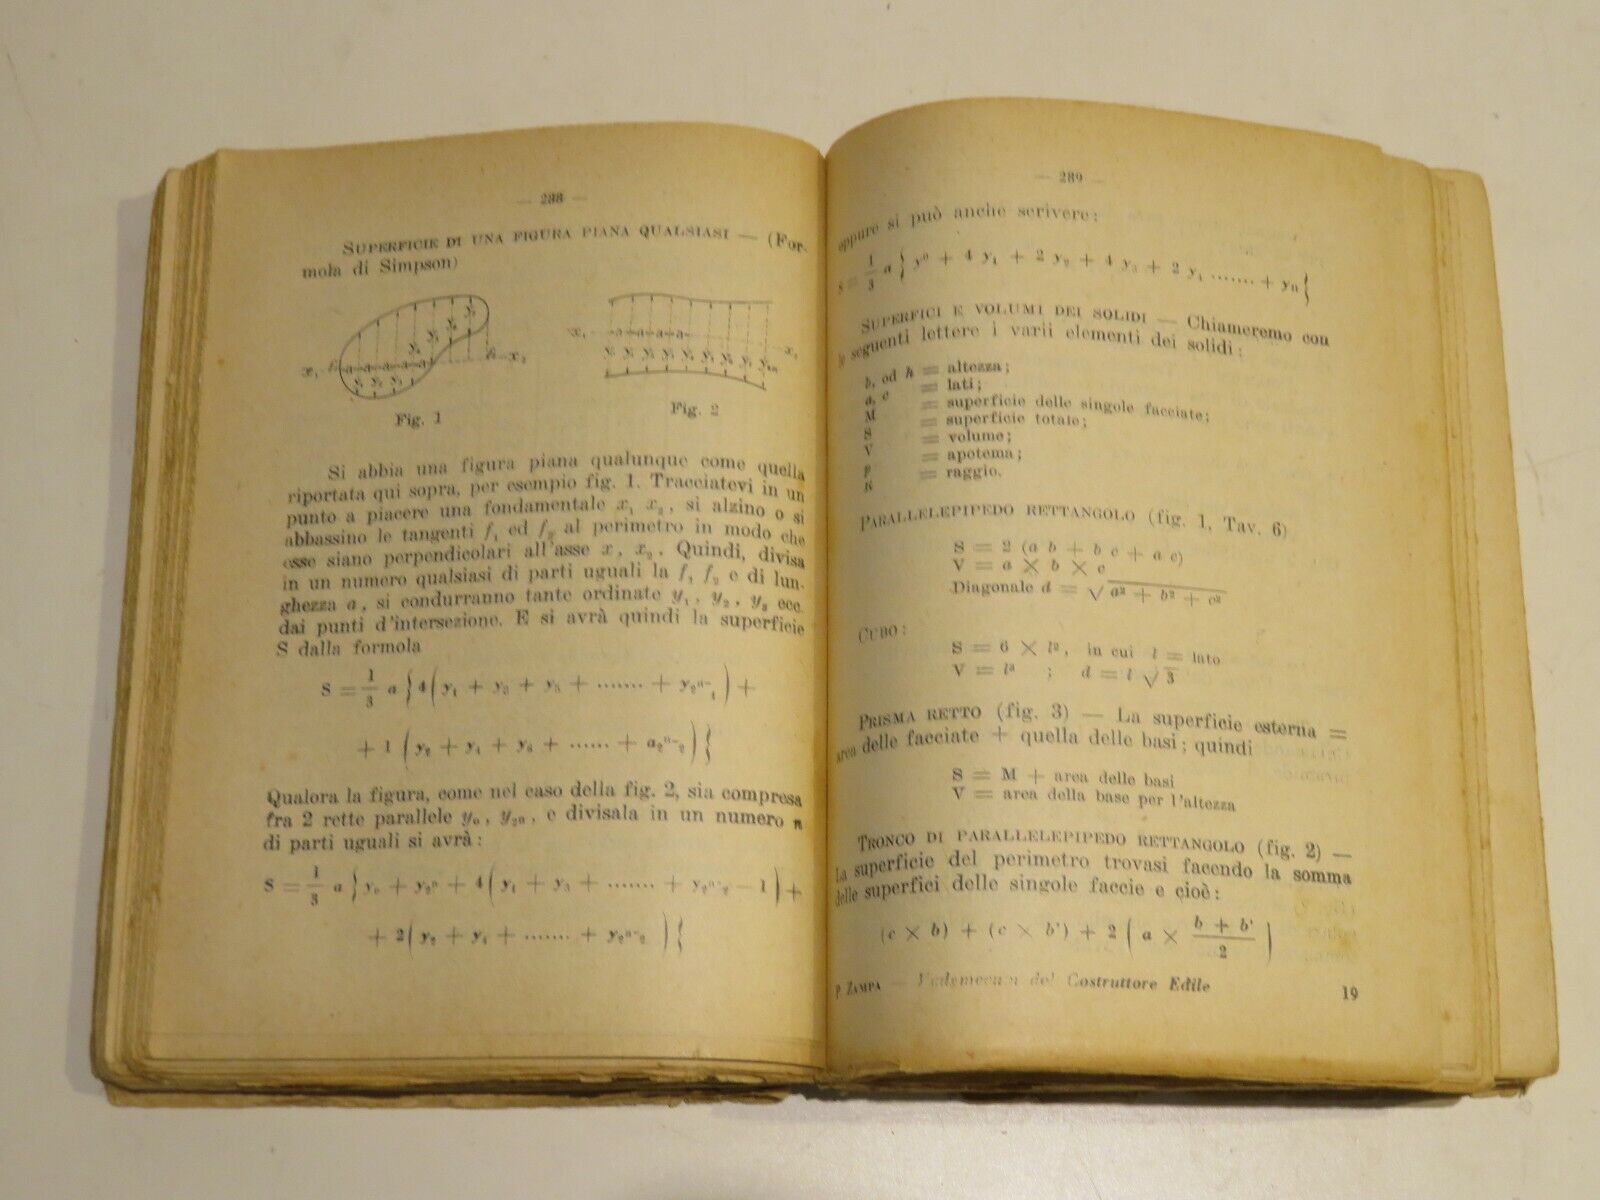 — 288 —
SUPERFICIE DI UNA FIGURA PIANA QUALSIASI — (For-
mola di Simpson)
Fig. 1
Fig. 2
Si abbia una figura piana qualunque come quella
riportata qui sopra, per esempio fig. 1. Tracciatevi in un
punto a piacere una fondamentale x₁ x₂, si alzino o si
abbassino le tangenti f₁ ed f₂ al perimetro in modo che
esse siano perpendicolari all'asse x, x₂. Quindi, divisa
in un numero qualsiasi di parti uguali la f₁ f₂ e di lun-
ghezza a, si condurranno tante ordinate y₁, y₂, y₃ ecc.
dai punti d'intersezione. E si avrà quindi la superficie
S dalla formola
S = 1/3 a { 4 ( y₁ + y₃ + y₅ + ....... + y₂ⁿ⁻₁ ) +
+ 1 ( y₂ + y₄ + y₆ + ...... + a₂ⁿ⁻₂ ) {
Qualora la figura, come nel caso della fig. 2, sia compresa
fra 2 rette parallele y₀, y₂ₙ, e divisala in un numero n
di parti uguali si avrà:
S = 1/3 a } y₀ + y₂ⁿ + 4 ( y₁ + y₃ + ....... + y₂ⁿ⁻₂ — 1 ) +
+ 2 ( y₂ + y₄ + ....... + y₂ⁿ⁻₂ ) {
— 289 —
oppure si può anche scrivere:
S = 1/3 a } y⁰ + 4 y₁ + 2 y₂ + 4 y₃ + 2 y₄ ....... + yn {
SUPERFICI E VOLUMI DEI SOLIDI — Chiameremo con
le seguenti lettere i varii elementi dei solidi:
b, od h = altezza;
a, c = lati;
M = superficie delle singole facciate;
S = superficie totale;
V = volume;
p = apotema;
R = raggio.
PARALLELEPIPEDO RETTANGOLO (fig. 1, Tav. 6)
S = 2 (a b + b c + a c)
V = a × b × c
Diagonale d = √a² + b² + c²
CUBO:
S = 6 × l², in cui l = lato
V = l³ ; d = l √3
PRISMA RETTO (fig. 3) — La superficie esterna =
area delle facciate + quella delle basi; quindi
S = M + area delle basi
V = area della base per l'altezza
TRONCO DI PARALLELEPIPEDO RETTANGOLO (fig. 2) —
La superficie del perimetro trovasi facendo la somma
delle superfici delle singole faccie e cioè:
(c × b) + (c × b') + 2 ( a × b + b' / 2 )
P. ZAMPA — Vademecum del Costruttore Edile 19